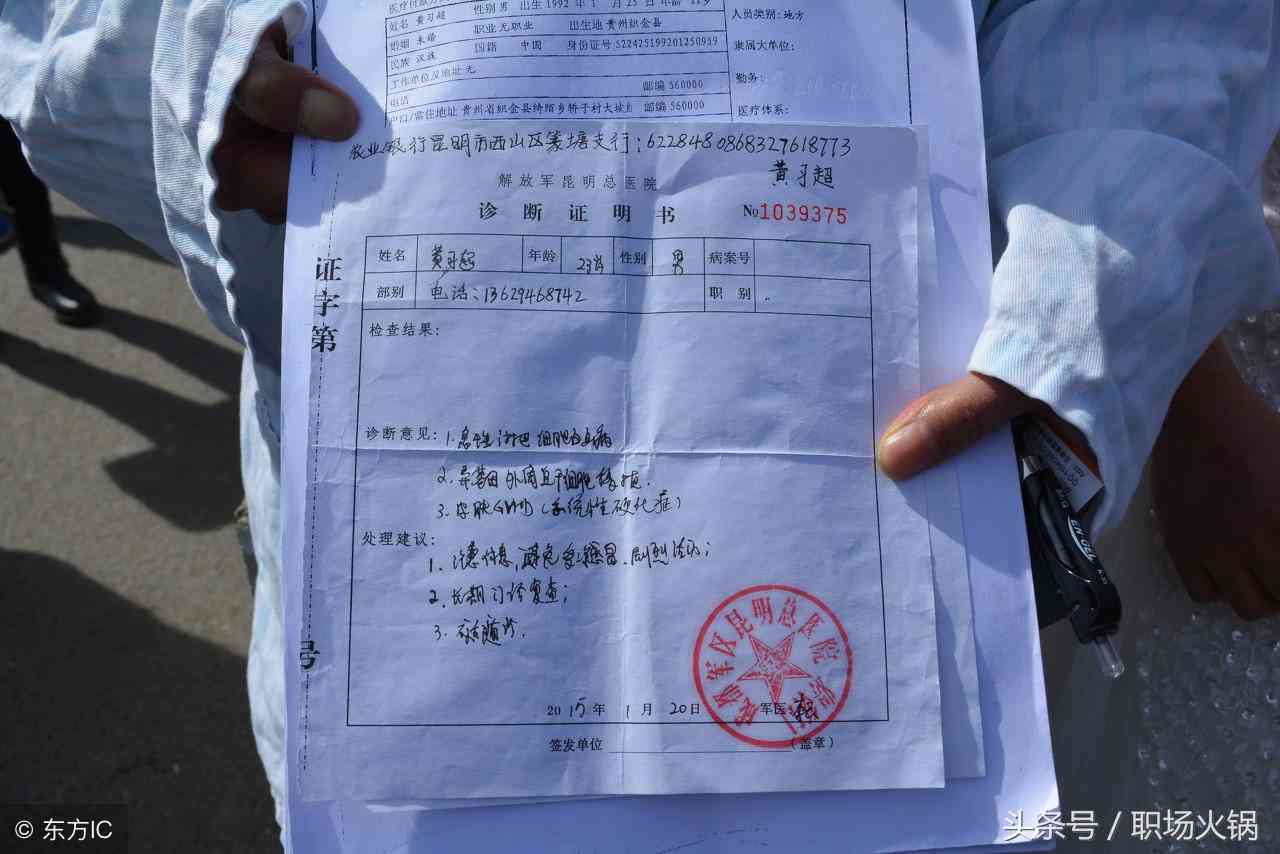 姓名 黄习超 性别 男 出生 1992 年 1 月 25 日
婚姻 未婚 职业 无职业 出生地 贵州织金县
民族 汉族 国籍 中国 身份证号 522425199201250959
工作单位及地址 无 邮编 560000
电话
户口/常住地址 贵州省织金县绮陌乡骄子村大坡 邮编 560000
人员类别: 地方
隶属大单位:
勤务:
医疗体系:
农业银行昆明市西山区篆塘支行: 6228480868327618773
黄习超
解放军昆明总医院
诊断证明书 №1039375
证字第
号
姓名 黄习超 年龄 23岁 性别 男 病案号
部别 电话: 13629468742 职别
检查结果:
诊断意见: 1. 急性淋巴细胞白血病
2. 异基因外周血干细胞移植.
3. 皮肤GVHD (系统性硬化症)
处理建议:
1. 注意休息, 避免受凉感冒、剧烈活动;
2. 长期门诊复查;
3. 随诊.
2015 年 1 月 20 日 军医
签发单位 (盖章)
成都军区昆明总医院
© 东方IC
头条号 / 职场火锅